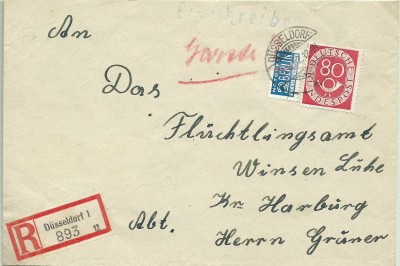 Einschreiben
An
DÜSSELDORF
NOTOPFER
2 BERLIN
STEUERMARKE
DEUTSCHE BUNDESPOST
80
Das
Flüchtlingsamt
Winsen Luhe
Kr. Harburg
Abt. Herrn Grüner
R
Düsseldorf 1
893 12